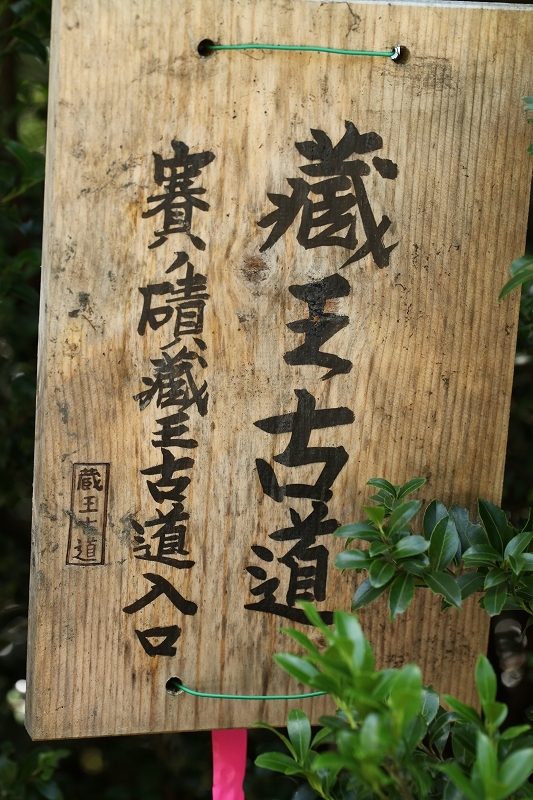 藏王古道
賽ノ磧藏王古道入口
蔵王古道